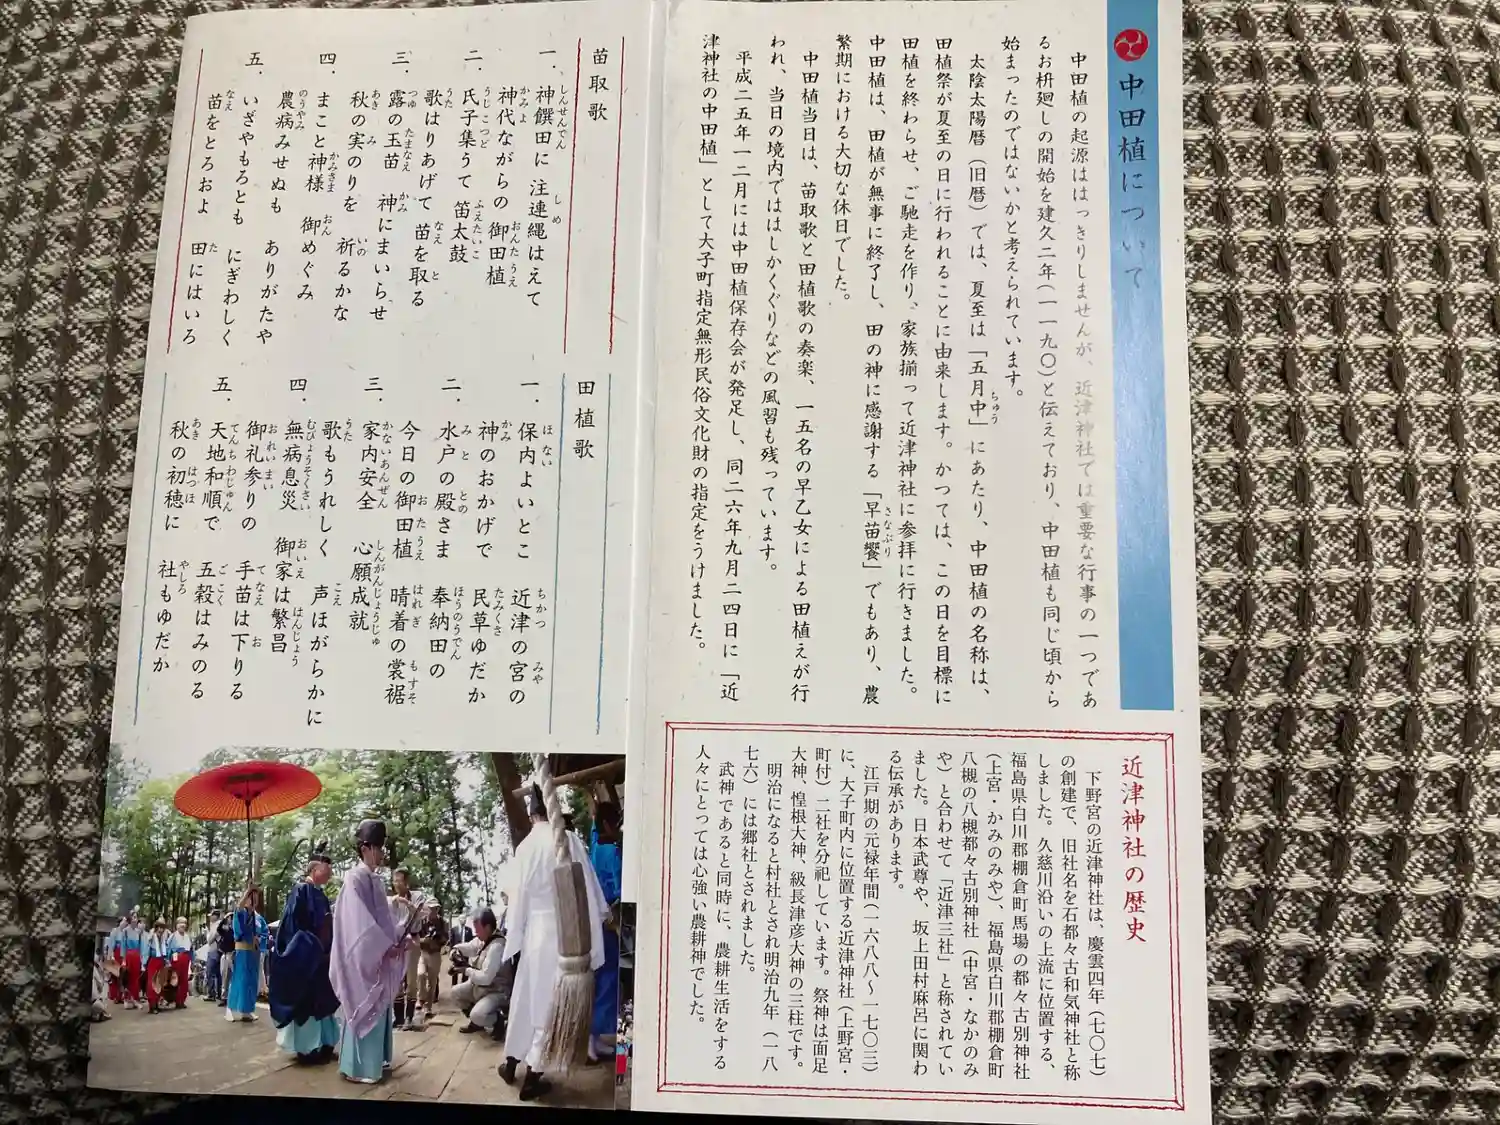 中田植について
中田植の起源ははっきりしませんが、近津神社では重要な行事の一つであ
るお枡廻しの開始を建久二年(一一九〇)と伝えており、中田植も同じ頃から
始まったのではないかと考えられています。
太陰太陽暦(旧暦)では、夏至は「五月中」にあたり、中田植の名称は、
ちゅう
田植祭が夏至の日に行われることに由来します。かつては、この日を目標に
田植を終わらせ、ご馳走を作り、家族揃って近津神社に参拝に行きました。
中田植は、田植が無事に終了し、田の神に感謝する「早苗饗」でもあり、農
さなぶり
繁期における大切な休日でした。
中田植当日は、苗取歌と田植歌の奏楽、一五名の早乙女による田植えが行
われ、当日の境内でははしかくぐりなどの風習も残っています。
平成二五年一二月には中田植保存会が発足し、同二六年九月二四日に「近
津神社の中田植」として大子町指定無形民俗文化財の指定をうけました。
近津神社の歴史
下野宮の近津神社は、慶雲四年(七〇七)
の創建で、旧社名を石都々古和気神社と称
しました。久慈川沿いの上流に位置する、
福島県白川郡棚倉町馬場の都々古別神社
(上宮・かみのみや)、福島県白川郡棚倉町
八槻の八槻都々古別神社(中宮・なかのみ
や)と合わせて「近津三社」と称されてい
ました。日本武尊や、坂上田村麻呂に関わ
る伝承があります。
江戸期の元禄年間(一六八八～一七〇三)
に、大子町内に位置する近津神社(上野宮・
町付)二社を分祀しています。祭神は面足
大神、惶根大神、級長津彦大神の三柱です。
明治になると村社とされ明治九年(一八
七六)には郷社とされました。
武神であると同時に、農耕生活をする
人々にとっては心強い農耕神でした。
苗取歌
一.神饌田に 注連縄はえて
しんせんでん しめ
神代ながらの 御田植
かみよ おんたうえ
二.氏子集うて 笛太鼓
うじこつど ふえたいこ
歌はりあげて 苗を取る
うた なえ と
三.露の玉苗 神にまいらせ
つゆ たまなえ かみ
秋の実のりを 祈るかな
あき み いの
四.まこと神様 御めぐみ
かみさま おん
農病みせぬも ありがたや
のうやみ
五.いざやもろとも にぎわしく
苗をとろおよ 田にはいろ
なえ た
田植歌
一.保内よいとこ 近津の宮の
ほない ちかつ みや
神のおかげで 民草ゆだか
かみ たみくさ
二.水戸の殿さま 奉納田の
みと との ほうのうでん
今日の御田植 晴着の裳裾
おたうえ はれぎ もすそ
三.家内安全 心願成就
かないあんぜん しんがんじょうじゅ
歌もうれしく 声ほがらかに
うた こえ
四.無病息災 御家は繁昌
むびょうそくさい おいえ はんじょう
御礼参りの 手苗は下りる
おれいまい てなえ お
五.天地和順で 五穀はみのる
てんちわじゅん ごこく
秋の初穂に 社もゆだか
あき はつほ やしろ